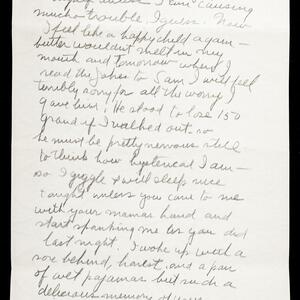 I am causing
much trouble, I guess. Now
I feel like a happy child again –
butter wouldn't melt in my
mouth and tomorrow when I
read the jokes to Sam I will feel
terribly sorry for all the worry I
gave him. He stood to lose 150
grand if I walked out. so
he must be pretty nervous still
to think how hysterical I am –
so I giggle & will sleep nice
tonight unless you come to me
with your mamas hand and
start spanking me as you did
last night. I woke up with a
sore behind, honest, and a pair
of wet pajamas but such a
delicious memory of your